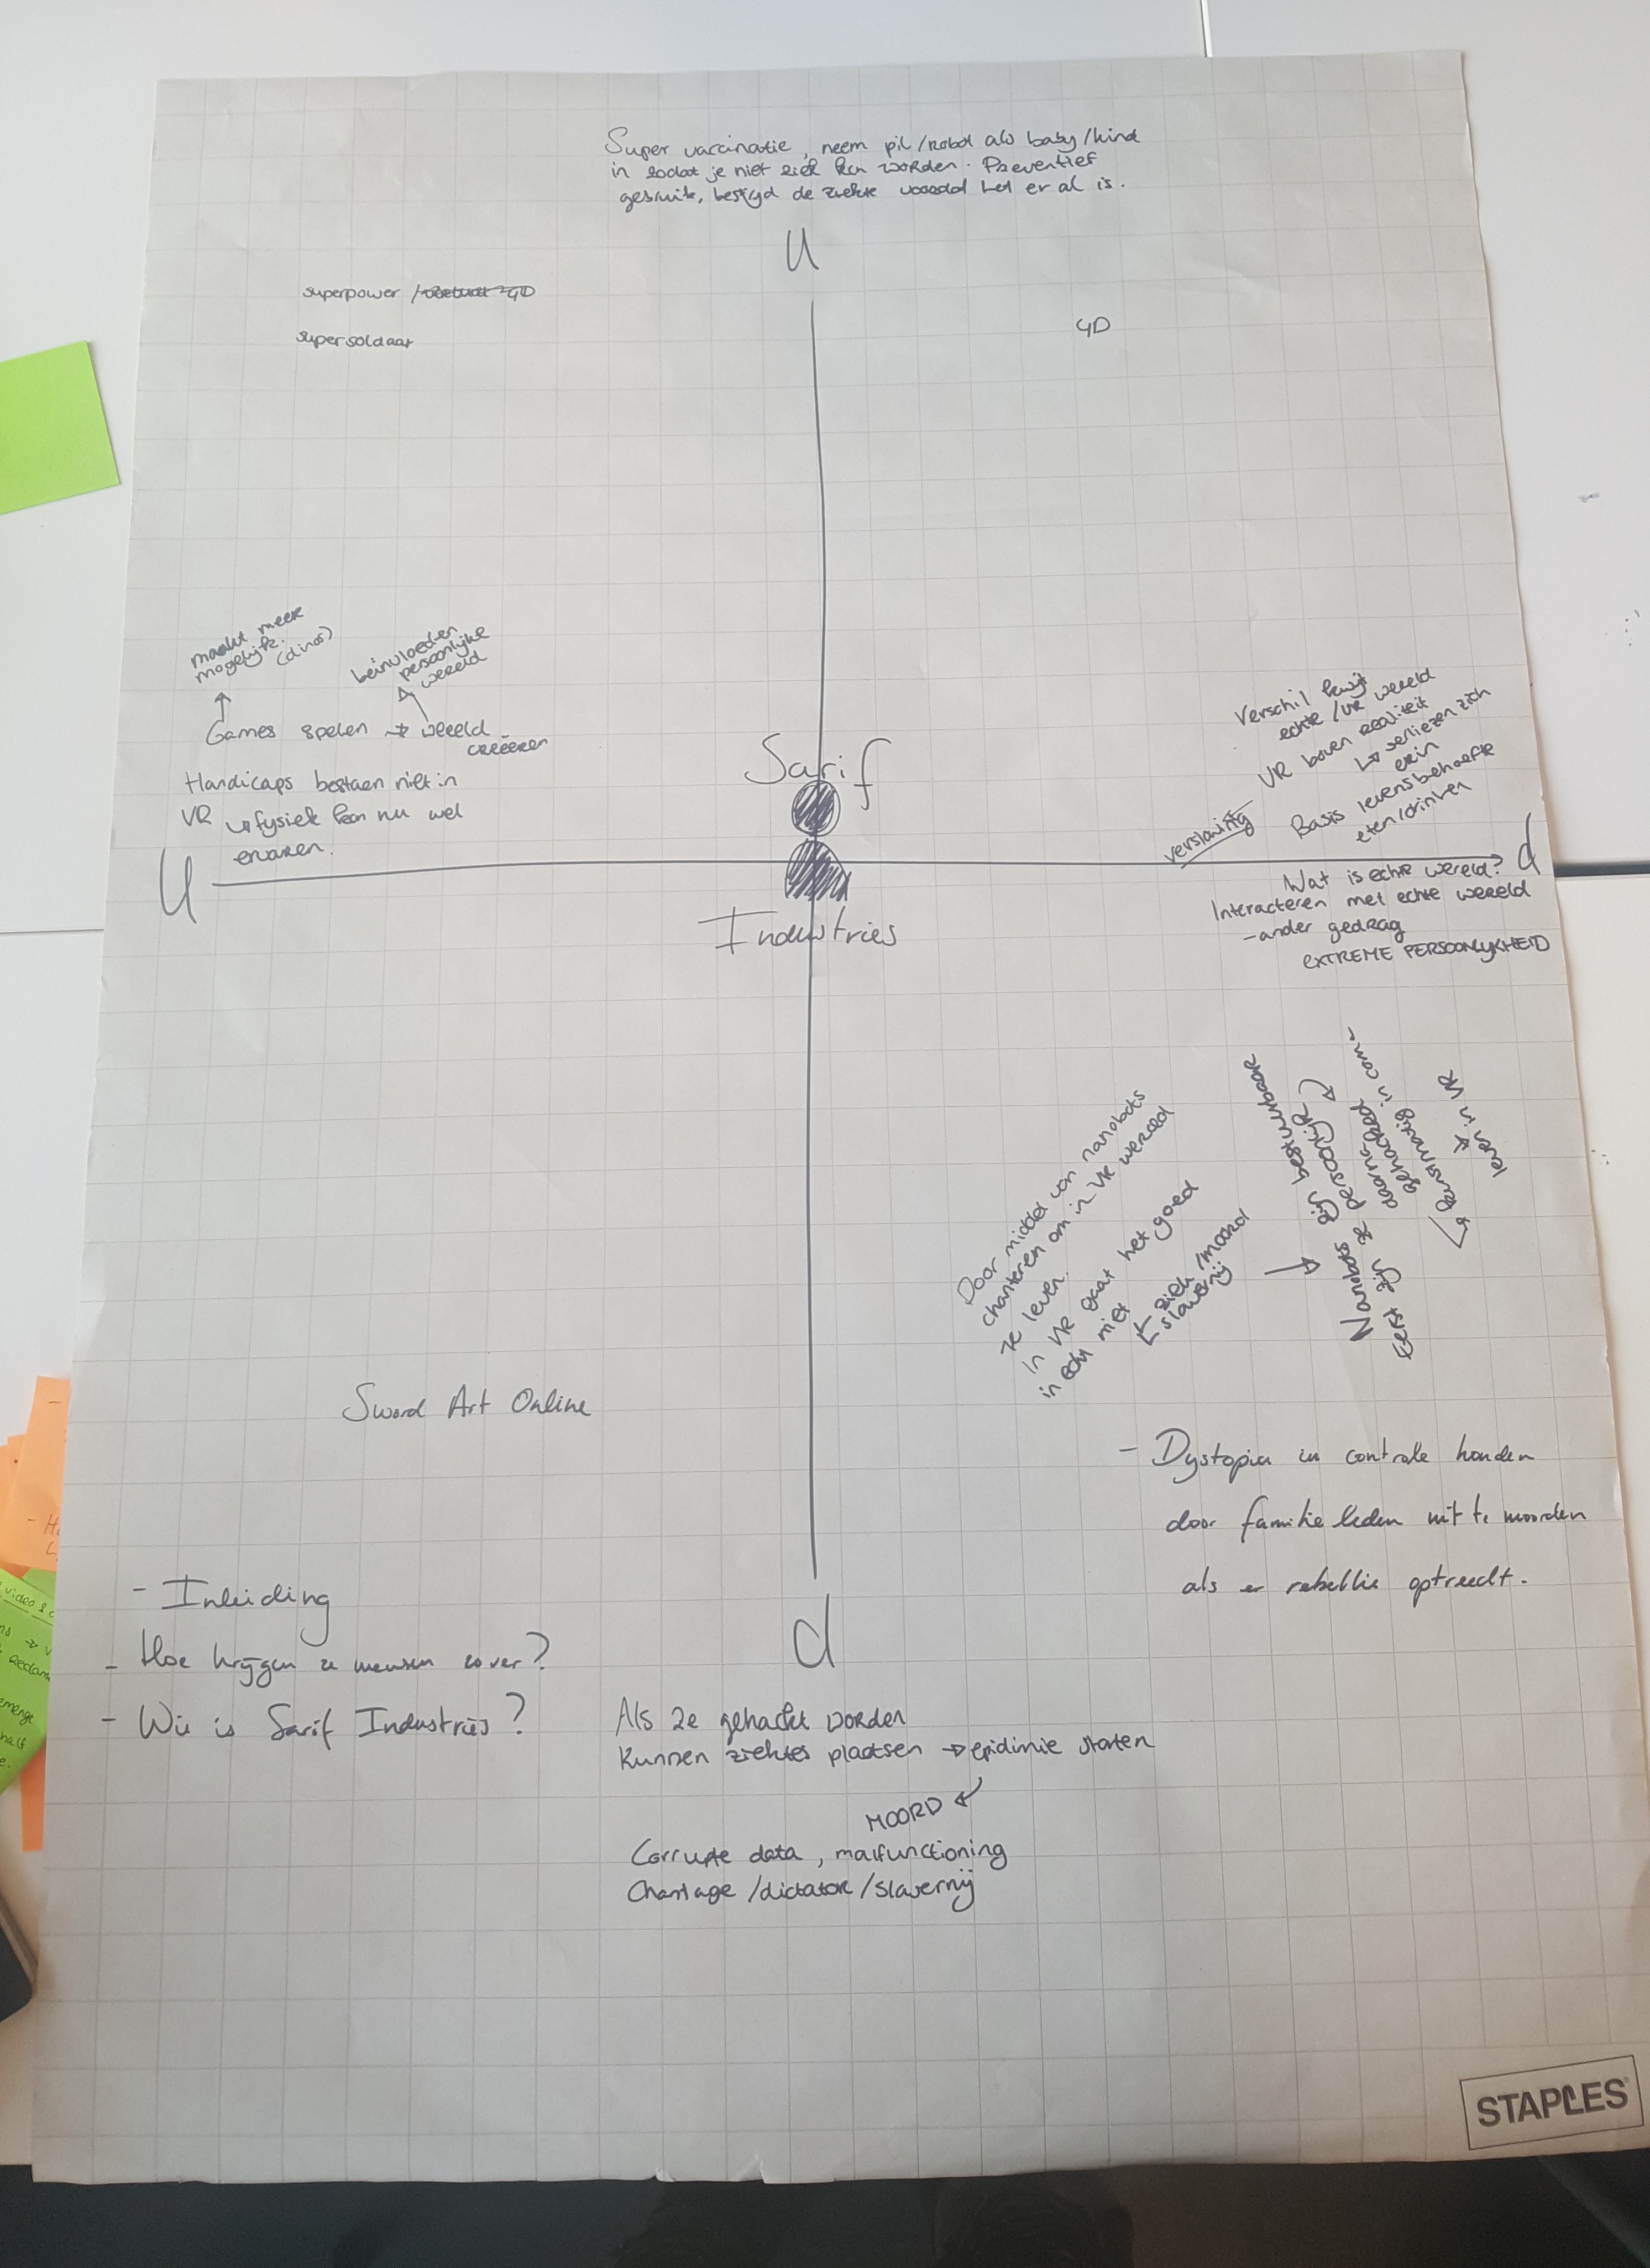 Super varcinatie, neem pil/robot als baby/kind
in zodat je niet ziek kan worden. Preventief
gebruik, bestijd de ziekte voordat het er al is.
U
superpower /
4D
supersoldaat
4D
maakt meer
mogelijk.
(dinos)
beïnvloeden
persoonlijke
wereld
Games spelen → wereld
creëeren
Handicaps bestaan niet in
VR ↳ fysiek kan nu wel
ervaren.
U
Sarif
Industries
Verschil kwijt
echte / VR wereld
VR boven realiteit
↳ verliezen zich
erin
Basis levensbehoefte
eten/drinken
verslaving
d
Wat is echte wereld?
Interacteren met echte wereld
- ander gedrag
EXTREME PERSOONLIJKHEID
Door middel van nanobots
chanteren om in VR wereld
te leven.
In VR gaat het goed
in echt niet
ziek/moord
slavernij
→
Nanobots zijn bestuurbaar
Eerst zijn ze persoonlijk
daarna
gehacked
in coma
leven in VR
Sword Art Online
- Dystopia in controle houden
door familie leden uit te moorden
als er rebellie optreedt.
- Inleiding
- Hoe krijgen ze mensen zover?
- Wie is Sarif Industries?
d
Als ze gehackt worden
Kunnen ziektes plaatsen → epidimie starten
MOORD
Corrupte data, malfunctioning
Chantage/dictator/slavernij
video &
STAPLES